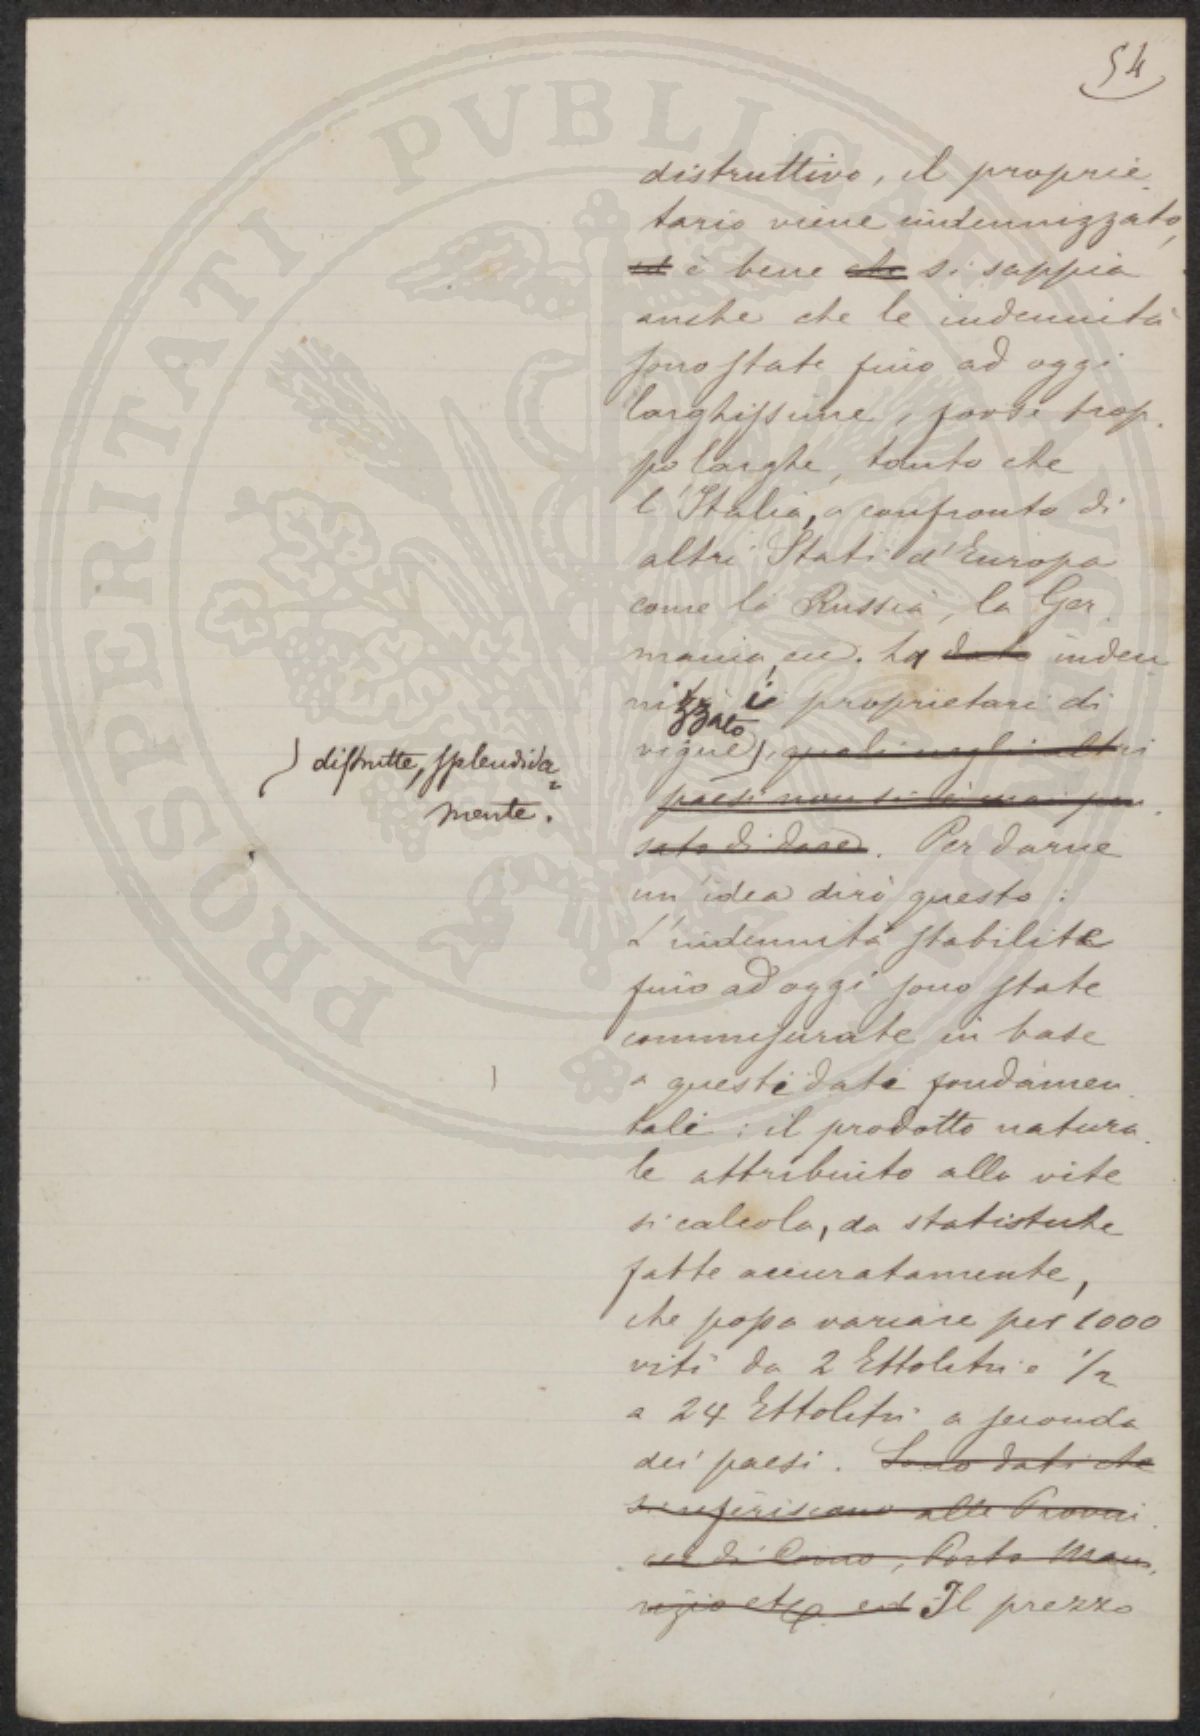 54
distruttivo, il proprie-
tario viene indennizzato,
ed è bene che si sappia
anche che le indennità
sono state fino ad oggi
larghissime, forse trop-
po larghe, tanto che
l'Italia, a confronto di
altri Stati d'Europa
come la Russia, la Ger-
mania, ecc. ha dato inden-
nizzato i proprietari di
vigne, quali negli altri
distrutte, splendida=
mente.
paesi non si è mai pen-
sato di dare. Per darne
un'idea dirò questo:
L'indennità stabilite
fino ad oggi sono state
commisurate in base
a questi dati fondamen-
tali: il prodotto natura-
le attribuito alla vite
si calcola, da statistiche
fatte accuratamente,
che possa variare per 1000
viti da 2 Ettolitri e 1/2
a 24 Ettolitri a seconda
dei paesi. Sono dati che
si riferiscono alle Provin-
cie di Como, Porto Mau-
rizio etc. ed Il prezzo
PROSPERITATI PUBLICAE